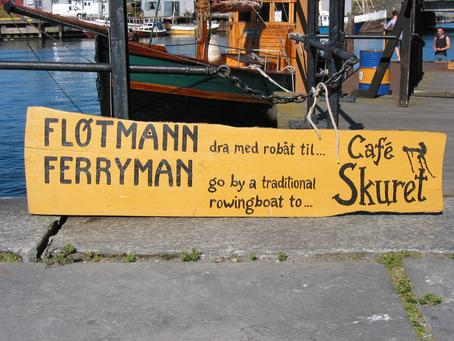 FLØTMANN dra med robåt til...
FERRYMAN go by a traditional
rowingboat to...
Café
Skuret